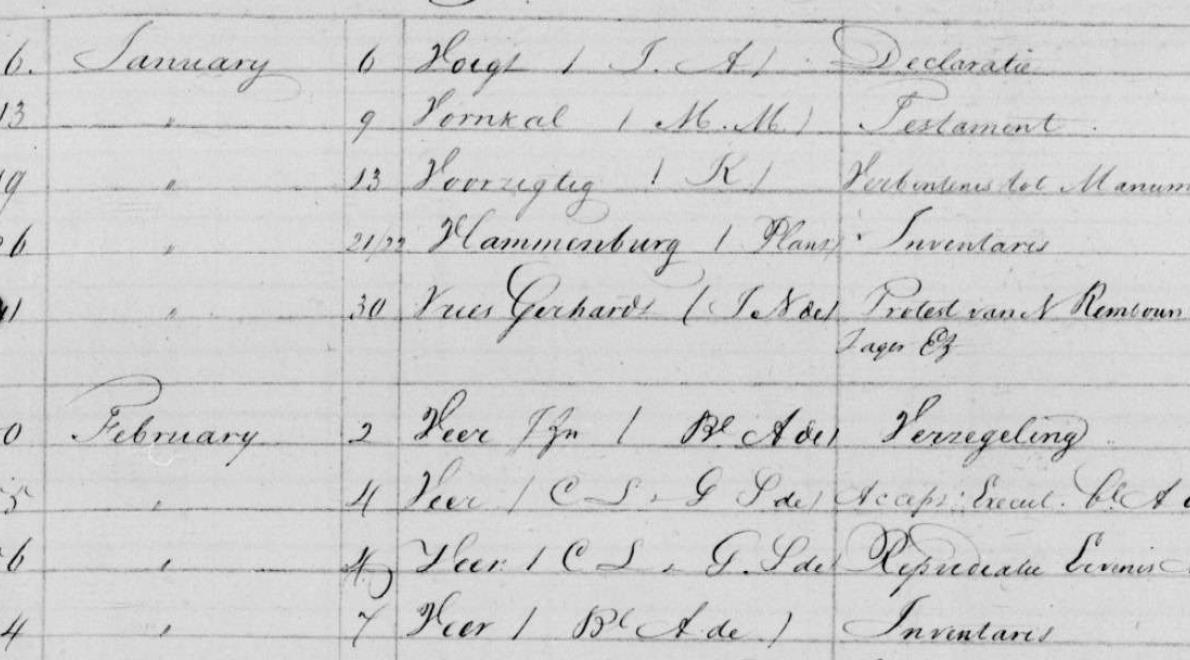 6. January 6 Voigt ( J. A) Declaratie
13 " 9 Vornkal ( M. M.) Testament
19 " 13 Voorzigtig ( K) Verbintenis tot Manum
26 " 21/22 Hammenburg ( Plant) Inventaris
41 " 30 Vries Gerhardt ( J N de) Protest van N
Jager
0 February 2 Veer ( A de) Verzegeling
5 " 4 Veer ( C L. G S de) Accept: Execut. A
6 " Veer ( C L. G. S de) Repudiatie
4 " 7 Veer ( A de.) Inventaris